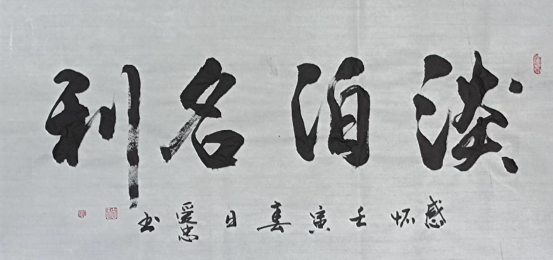 淡泊名利
感怀壬寅春日书